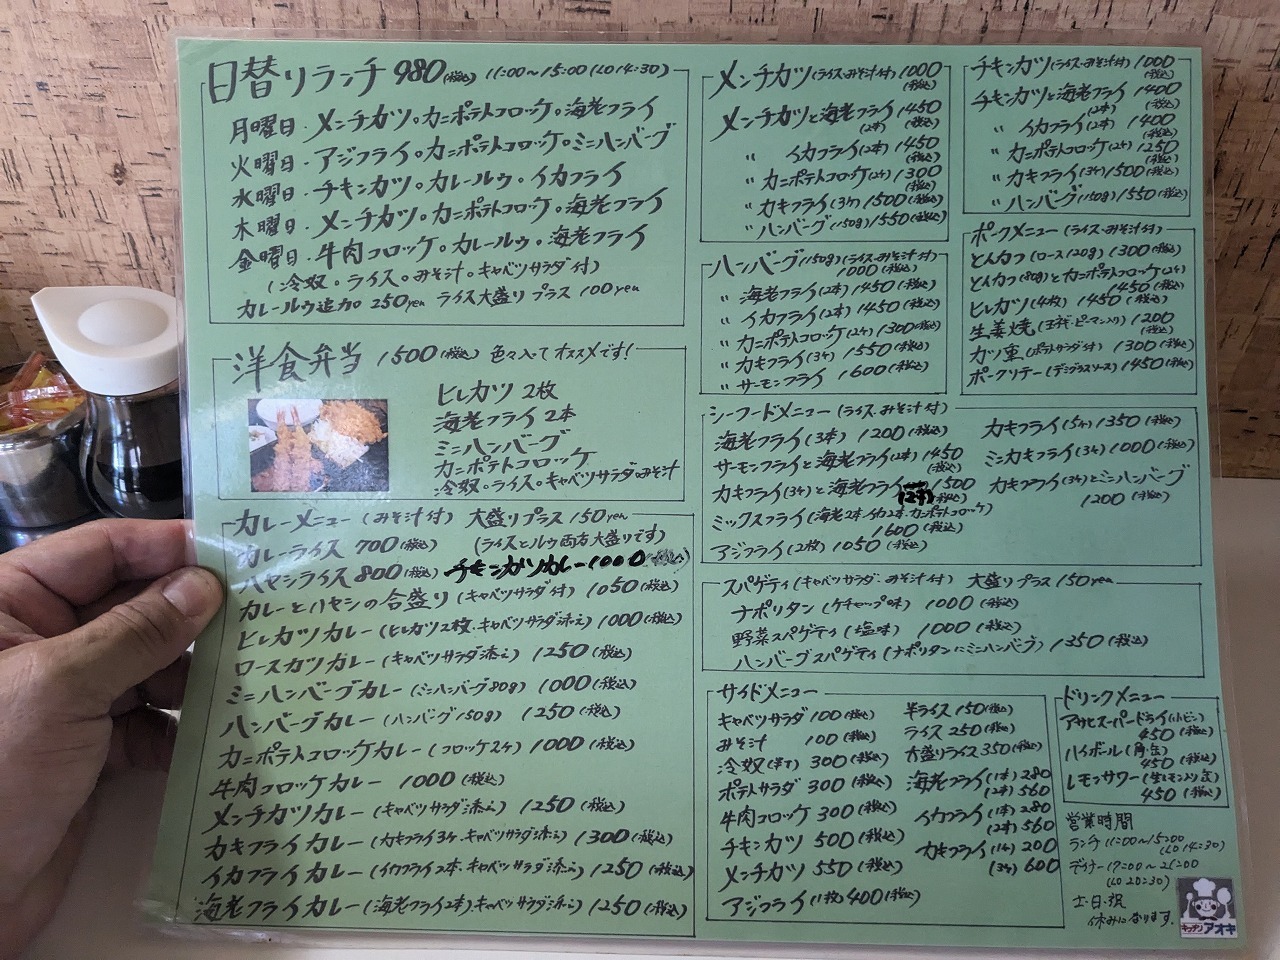 日替りランチ 980(税込) 11:00~15:00(LO 14:30)
月曜日・メンチカツ。カニポテトコロッケ。海老フライ
火曜日・アジフライ。カニポテトコロッケ。ミニハンバーグ
水曜日・チキンカツ。カレールウ。イカフライ
木曜日・メンチカツ。カニポテトコロッケ。海老フライ
金曜日・牛肉コロッケ。カレールゥ。海老フライ
(冷奴。ライス。みそ汁。キャベツサラダ付)
カレールウ追加 250yen ライス大盛り プラス 100yen
洋食弁当 1500(税込) 色々入って オススメです!
ヒレカツ 2枚
海老フライ 2本
ミニハンバーグ
カニポテトコロッケ
冷奴。ライス。キャベツサラダ。みそ汁
カレーメニュー (みそ汁付) 大盛りプラス 150yen
カレーライス 700(税込) (ライスとルウ両方大盛りです)
ハヤシライス 800(税込) チキンカツカレー1000(税込)
カレーとハヤシの合盛り (キャベツサラダ付) 1050(税込)
ヒレカツカレー (ヒレカツ2枚・キャベツサラダ添え) 1000(税込)
ロースカツカレー (キャベツサラダ添え) 1250(税込)
ミニハンバーグカレー (ミニハンバーグ80g) 1000(税込)
ハンバーグカレー (ハンバーグ150g) 1250(税込)
カニポテトコロッケカレー (コロッケ2ケ) 1000(税込)
牛肉コロッケカレー 1000(税込)
メンチカツカレー (キャベツサラダ添え) 1250(税込)
カキフライカレー (カキフライ3ケ・キャベツサラダ添え) 1300(税込)
イカフライカレー (イカフライ2本・キャベツサラダ添え) 1250(税込)
海老フライカレー (海老フライ2本)・キャベツサラダ添え) 1250(税込)
メンチカツ(ライス・みそ汁付) 1000(税込)
メンチカツと海老フライ(2本) 1450(税込)
〃 イカフライ(2本) 1450(税込)
〃 カニポテトコロッケ(2ケ) 1300(税込)
〃 カキフライ(3ケ) 1500(税込)
〃 ハンバーグ(150g) 1550(税込)
ハンバーグ(150g)(ライス・みそ汁付) 1000(税込)
〃 海老フライ(2本) 1450(税込)
〃 イカフライ(2本) 1450(税込)
〃 カニポテトコロッケ(2ケ) 1300(税込)
〃 カキフライ(3ケ) 1550(税込)
〃 サーモンフライ 1600(税込)
チキンカツ(ライス・みそ汁付) 1000(税込)
チキンカツと海老フライ(2本) 1400(税込)
〃 イカフライ(2本) 1400(税込)
〃 カニポテトコロッケ(2ケ) 1250(税込)
〃 カキフライ(3ケ) 1500(税込)
〃 ハンバーグ(150g) 1550(税込)
ポークメニュー (ライス・みそ汁付)
とんかつ(ロース120g) 1300(税込)
とんかつ(80g)とカニポテトコロッケ(2ケ) 1450(税込)
ヒレカツ(4枚) 1450(税込)
生姜焼(玉ネギ・ピーマン入り) 1200(税込)
カツ重(ポテトサラダ付) 1300(税込)
ポークソテー(デミグラスソース) 1450(税込)
シーフードメニュー (ライス・みそ汁付)
海老フライ(3本) 1200(税込)
サーモンフライと海老フライ(2本) 1450(税込)
カキフライ(3ケ)と海老フライ(2本) 1500(税込)
ミックスフライ(海老2本・イカ2本・カニポテトコロッケ) 1600(税込)
アジフライ(2枚) 1050(税込)
カキフライ(5ケ) 1350(税込)
ミニカキフライ(3ケ) 1000(税込)
カキフライ(3ケ)とミニハンバーグ 1200(税込)
スパゲティ(キャベツサラダ・みそ汁付) 大盛りプラス 150yen
ナポリタン (ケチャップ味) 1000(税込)
野菜スパゲティ (塩味) 1000(税込)
ハンバーグスパゲティ(ナポリタンにミニハンバーグ) 1350(税込)
サイドメニュー
キャベツサラダ 100(税込)
みそ汁 100(税込)
冷奴(半丁) 300(税込)
ポテトサラダ 300(税込)
牛肉コロッケ 300(税込)
チキンカツ 500(税込)
メンチカツ 550(税込)
アジフライ(1枚) 400(税込)
半ライス 150(税込)
ライス 250(税込)
大盛りライス 350(税込)
海老フライ(1本) 280
(2本) 560
イカフライ(1本) 280
(2本) 560
カキフライ(1ケ) 200
(3ケ) 600
ドリンクメニュー
アサヒスーパードライ(小ビン) 450(税込)
ハイボール(角・缶) 450(税込)
レモンサワー(生レモン入り缶) 450(税込)
営業時間
ランチ 11:00~15:00
(LO 14:30)
ディナー 17:00~21:00
(LO 20:30)
土・日・祝
休みになります。
キッチン アオキ